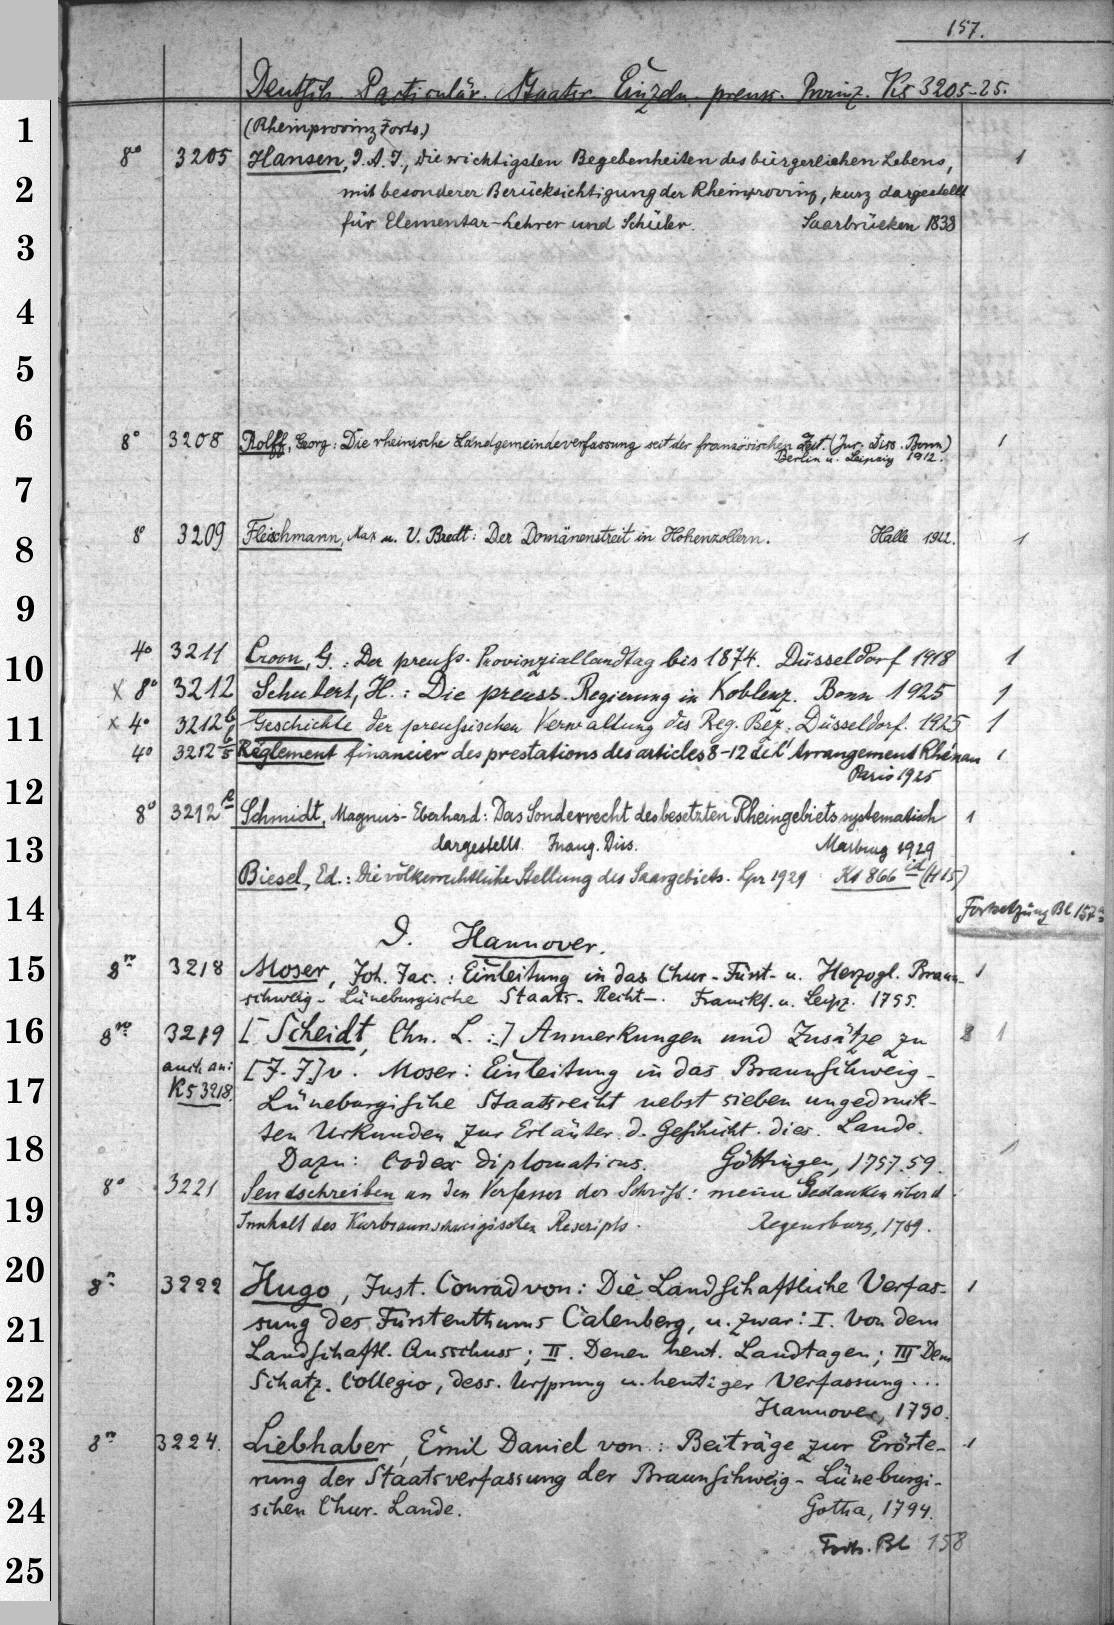 157.
Deutsch. Particulär. Staatsr. Einzeln. preuss. Provinz. Ks 3205-25.
(Rheinprovinz Forts.)
8° 3205 Hansen, J. A. J., die wichtigsten Begebenheiten des bürgerlichen Lebens, 1
mit besonderer Berücksichtigung der Rheinprovinz, kurz dargestellt
für Elementar-Lehrer und Schüler. Saarbrücken 1833
8° 3208 Rolff, Georg: Die rheinische Landgemeindeverfassung seit der französischen Zeit. (Jur. Diss. Bonn) 1
Berlin u. Leipzig 1912.
8° 3209 Fleischmann, Max u. V. Bredt: Der Domänenstreit in Hohenzollern. Halle 1912. 1
4° 3211 Croon, G.: Der preuss. Provinziallandtag bis 1874. Düsseldorf 1918 1
x 8° 3212 Schubert, H.: Die preuss. Regierung in Koblenz. Bonn 1925 1
x 4° 3212 b Geschichte der preussischen Verwaltung des Reg. Bez. Düsseldorf. 1925 1
4° 3212 Règlement financier des prestations des articles 8-12 de l'Arrangement Rhénan 1
Paris 1925
8° 3212 Schmidt, Magnus-Eberhard: Das Sonderrecht des besetzten Rheingebiets systematisch 1
dargestellt. Inaug. Diss. Marburg 1929
Biesel, Ed.: Die völkerrechtliche Stellung des Saargebiets. Lpz 1929 Ks 866 id (H 15)
Fortsetzung Bl 157a
J. Hannover.
8° 3218 Moser, Joh. Jac.: Einleitung in das Chur-Fürst- u. Herzogl. Braun- 1
schweig-Lüneburgische Staats-Recht-. Franckf. u. Leipz. 1755.
8° 3219 [Scheidt, Chn. L.:] Anmerkungen und Zusätze zu 1
auch an: [J. J.] v. Moser: Einleitung in das Braunschweig-
Ks 3218. Lüneburgische Staatsrecht nebst sieben ungedruk-
ten Urkunden zur Erläuter. d. Geschicht. dies. Lande.
Dazu: Codex diplomaticus. Göttingen, 1757.59. 1
8° 3221 Sendschreiben an den Verfasser der Schrift: meine Gedanken über d.
Innhalt des Kurbraunschweigischen Rescripts. Regensburg, 1789.
8° 3222 Hugo, Just. Conrad von: Die Landschaftliche Verfas- 1
sung des Fürstenthums Calenberg, u. zwar: I. Von dem
Landschaftl. Ausschuss; II. Denen heut. Landtagen; III Dem
Schatz. Collegio, dess. Ursprung u. heutiger Verfassung...
Hannover, 1790.
8° 3224. Liebhaber, Emil Daniel von: Beiträge zur Erörte- 1
rung der Staatsverfassung der Braunschweig-Lüneburgi-
schen Chur. Lande. Gotha, 1794.
Forts. Bl 158
1
2
3
4
5
6
7
8
9
10
11
12
13
14
15
16
17
18
19
20
21
22
23
24
25